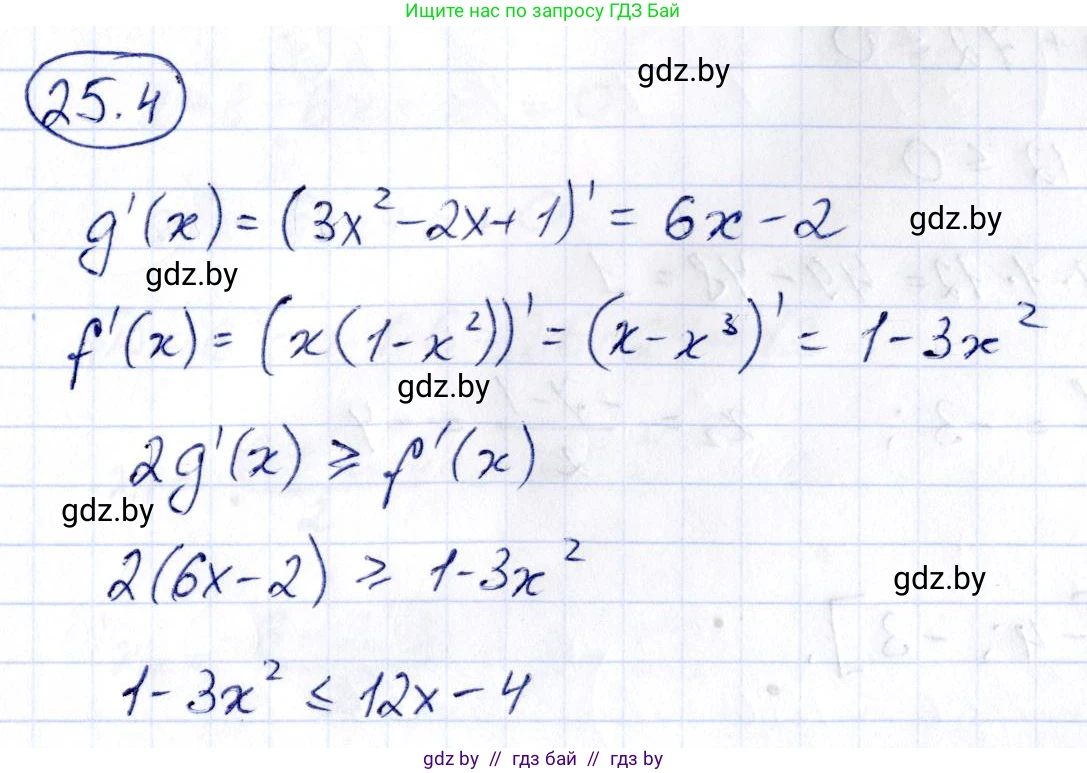 Ищите нас по запросу ГДЗ Бай
25.4
gdz.by
g'(x) = (3x² - 2x + 1)' = 6x - 2
gdz.by
gdz.by
f'(x) = (x(1 - x²))' = (x - x³)' = 1 - 3x²
gdz.by
2g'(x) ⩾ f'(x)
gdz.by
2(6x - 2) ⩾ 1 - 3x²
gdz.by
1 - 3x² ⩽ 12x - 4
gdz.by // гдз бай // гдз by